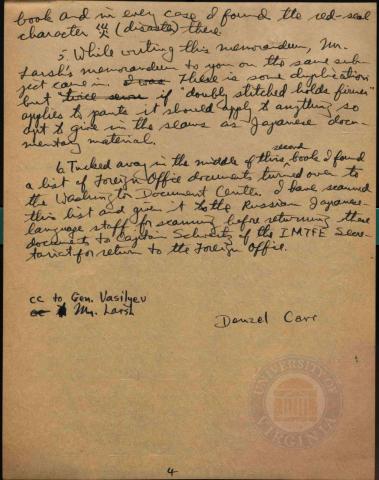 book and in every case I found the red-seal
character 災 (disaster) there.
5. While writing this memorandum, Mr.
Larsh's memorandum to you on the same sub-
ject came in. There is some duplication
but twice sewn if "doubly stitched holds firmer"
applies to pants it should apply to anything so
apt to give in the seams as Japanese docu-
mentary material.
6. Tucked away in the middle of this second book I found
a list of Foreign Office documents turned over to
the Washington Document Center. I have scanned
this list and given it to the Russian Japanese-
language staff for scanning before returning these
documents to Captain Schwartz of the IMTFE Secre-
tariat for return to the Foreign Office.
cc to Gen. Vasilyev
cc Mr. Larsh
Denzel Carr
UNIVERSITY OF
VIRGINIA
4